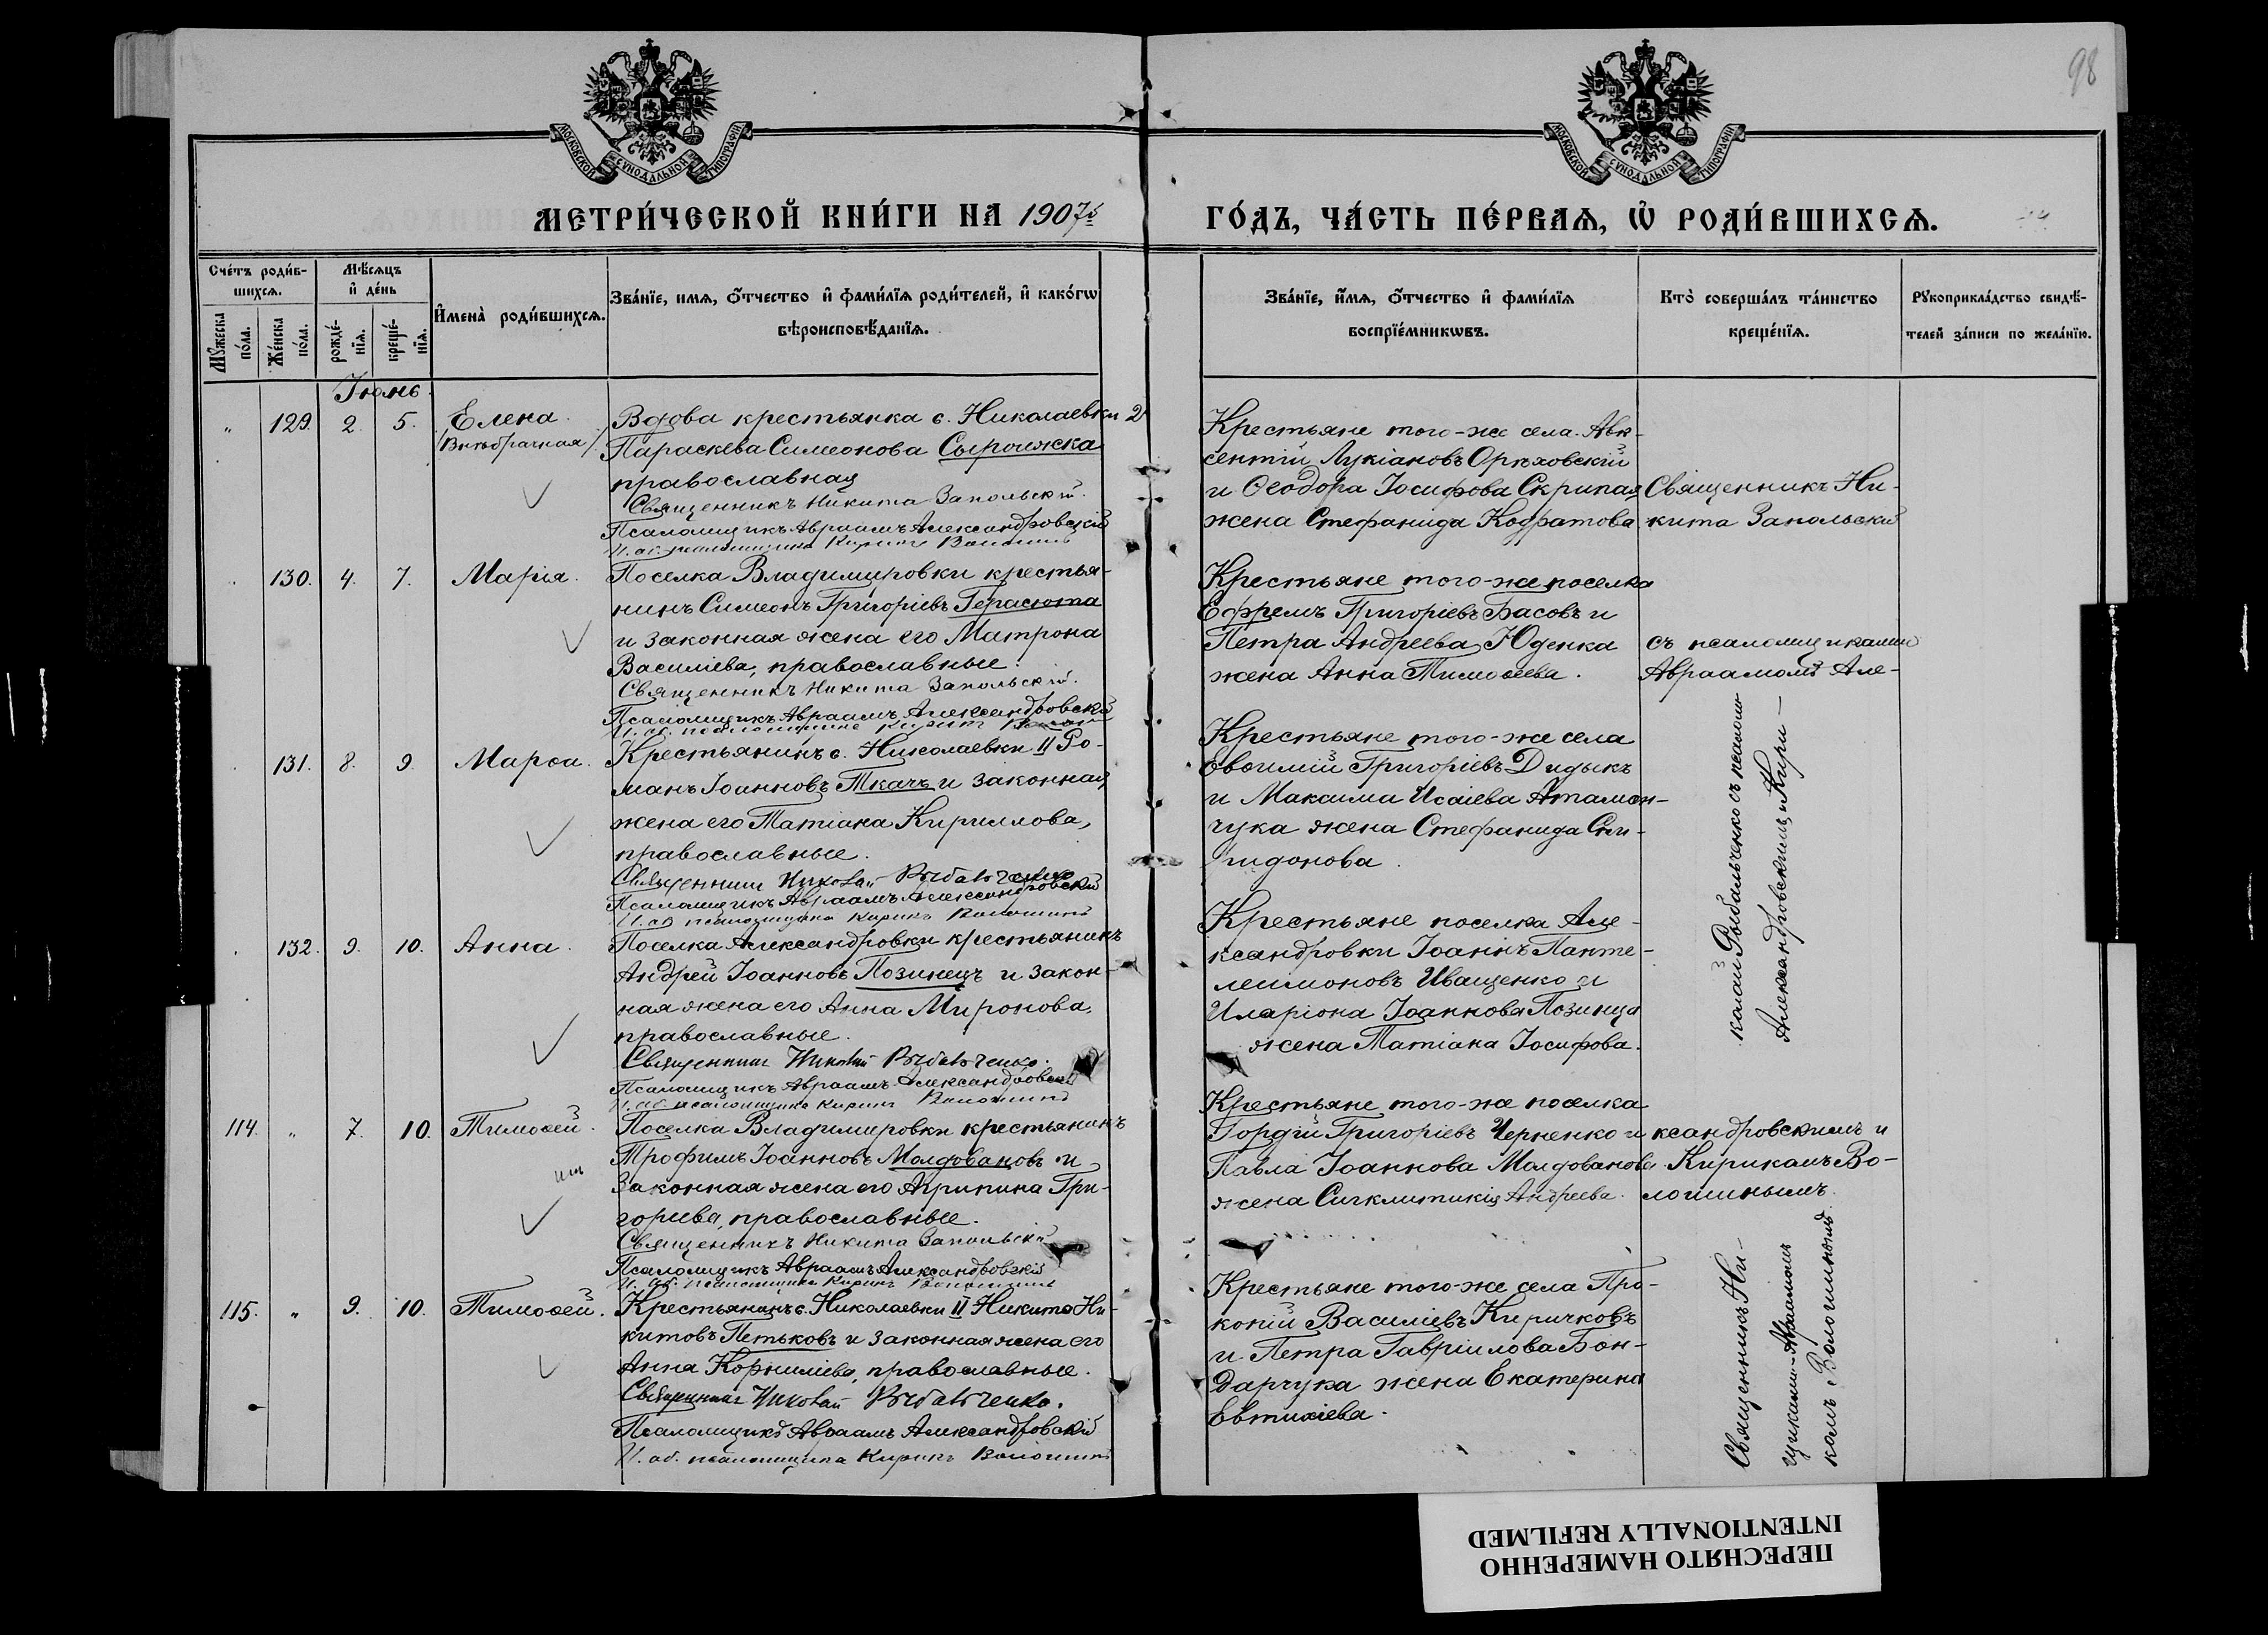 98
МОСКОВСКОЙ СѴНОДАЛЬНОЙ ТИПОГРАФІИ
МОСКОВСКОЙ СѴНОДАЛЬНОЙ ТИПОГРАФІИ
МЕТРИ́ЧЕСКОЙ КНИ́ГИ НА 1907й
ГО́ДЪ, ЧА́СТЬ ПЕ́РВАѦ, Ѡ҆ РОДИ́ВШИХСѦ.
Сче́тъ роди́в-
шихсѧ.
Мꙋжеска
по́ла.
Же́нска
по́ла.
Мѣ́сѧцъ
и҆ де́нь
рожде́-
нїѧ.
креще́-
нїѧ.
И҆мена̀ роди́вшихсѧ.
Зва́нїе, имѧ, ѻ҆́тчество и҆ фами́лїѧ роди́телей, и҆ како́гѡ
вѣроисповѣ́данїѧ.
Зва́нїе, и҆́мѧ, ѻ҆́тчество и҆ фами́лїѧ
воспрїе́мникѡвъ.
Кто̀ соверша́лъ та́инство
креще́нїѧ.
Рꙋкоприкла́дство свидѣ́-
телей за́писи по жела́нїю.
Іюнь.
" 129. 2. 5. Елена.
(Внѣбрачная)
Вдова крестьянка с. Николаевки 2
Параскева Симеонова Сыроижка
православная
Священникъ Никита Запольскій.
Псаломщикъ Авраамъ Александровскій
И. об. псаломщика Кирикъ Волошинъ
Крестьяне того-же села Авк-
сентій Лукіановъ Орѣховскій
и Ѳеодора Іосифова Скрипая
жена Стефанида Кодратова
Священникъ Ни-
кита Запольскій
130. 4. 7. Марія.
Поселка Владимировки крестья-
нинъ Симеонъ Григоріевъ Герасюта
и законная жена его Матрона
Василіева, православные.
Священникъ Никита Запольскій.
Псаломщикъ Авраамъ Александровскій
И. об. псаломщика Кирикъ
Крестьяне того-же поселка
Ефремъ Григоріевъ Басовъ и
Петра Андреева Юденка
жена Анна Тимоѳеева.
съ псаломщиками
Авраамомъ Але-
131. 8. 9. Марѳа.
Крестьянинъ с. Николаевки II Ро-
манъ Іоанновъ Ткачъ и законная
жена его Татіана Кириллова,
православные.
Священникъ Николай Рыбальченко
Псаломщикъ Авраамъ Александровскій
И. об. псаломщика Кирикъ Волошинъ
Крестьяне того-же села
Евѳимій Григоріевъ Дидыкъ
и Максима Исаіева Атаман-
чука жена Стефанида Спи-
ридонова.
колай Рыбальченко съ псалом
Александровскимъ и Кири-
132. 9. 10. Анна.
Поселка Александровки крестьянинъ
Андрей Іоанновъ Позинецъ и закон-
ная жена его Анна Миронова,
православные.
Священникъ Николай Рыбальченко.
Псаломщикъ Авраамъ Александровскій
И. об. псаломщика Кирикъ Волошинъ
Крестьяне поселка Але-
ксандровки Іоаннъ Панте-
леимоновъ Иващенко и
Иларіона Іоаннова Позинца
жена Татіана Іосифова.
114. " 7. 10. Тимоѳей.
Поселка Владимировки крестьянинъ
Трофимъ Іоанновъ Молдовановъ и
законная жена его Агрипина Гри-
горіева, православные.
Священникъ Никита Запольскій
Псаломщикъ Авраамъ Александровскій
И. об. псаломщика Кирикъ Волошинъ
Крестьяне того-же поселка
Гордій Григоріевъ Черненко и
Павла Іоаннова Молдованова
жена Сигклитикія Андреева.
ксандровскимъ и
Кирикомъ Во-
лошинымъ.
115. " 9. 10. Тимоѳей.
Крестьянинъ с. Николаевки II Никита Ни-
китовъ Петьковъ и законная жена его
Анна Корниліева, православные.
Священникъ Николай Рыбальченко.
Псаломщикъ Авраамъ Александровскій
И. об. псаломщика Кирикъ Волошинъ
Крестьяне того-же села Про-
копій Василіевъ Киричковъ
и Петра Гавріилова Бон-
дарчука жена Екатерина
Евтихіева.
Священникъ Ни-
щиками Авраамомъ
комъ Волошинымъ.
ПЕРЕСНЯТО НАМЕРЕННО
INTENTIONALLY REFILMED